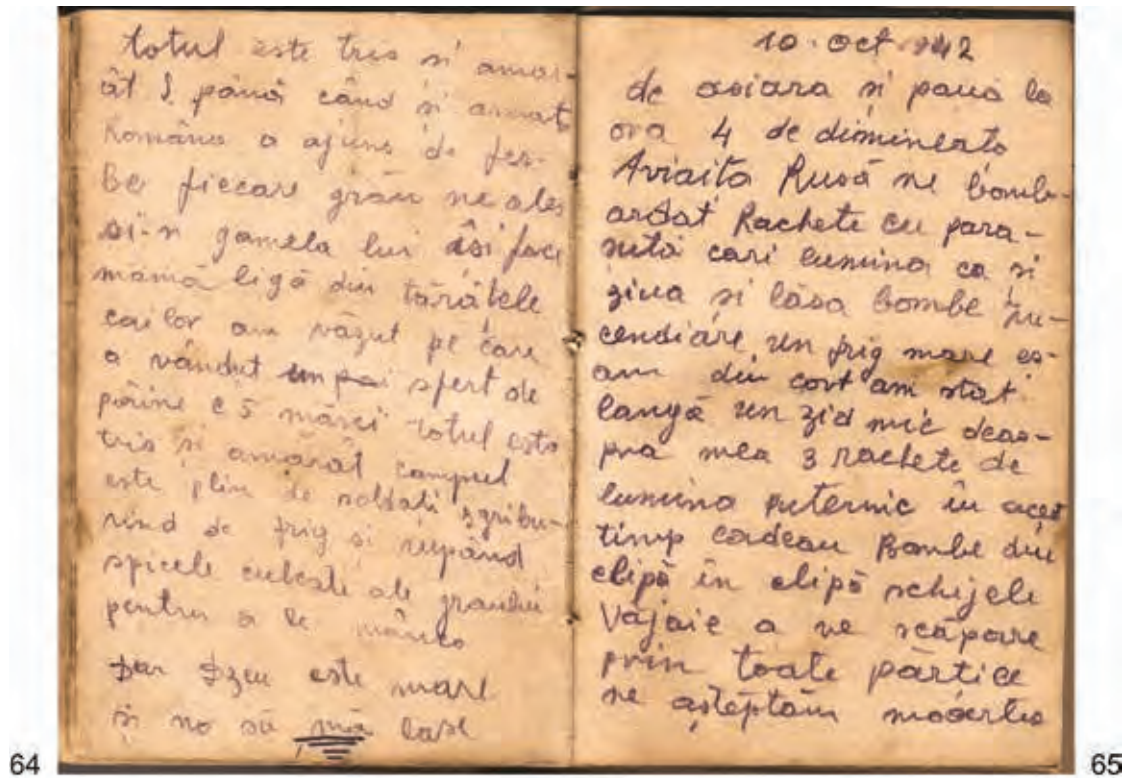 totul este tris si amar-
ât S până când si armat
Română a ajuns să fer-
be fiecare grâu ne ales
si-n gamela lui îsi face
mămăligă din tărâtele
cailor am văzut pe care
a vândut un sfert de
pâine c 5 mărci totul este
tris si amărât campul
este plin de soldati sgribu-
rind de frig si rupând
spicele culeste ale graului
pentru a le mânca
dar Dzeu este mare
si no să mă lase
64
10. oct. 942
de asiara si pana la
ora 4 de dimineata
Aviaita Rusă ne bomb-
ardat Rachete cu para-
sută cari lumina ca si
ziua si lăsa bombe în-
cendiare un frig mare es-
am din cort am stat
langă un zid mic deas-
pra mea 3 rachete de
lumina puternic în acest
timp cadeau Bombe din
clipă în clipă schijele
Vajaie a ne scăpare
prin toate părtice
ne așteptăm moartea
65